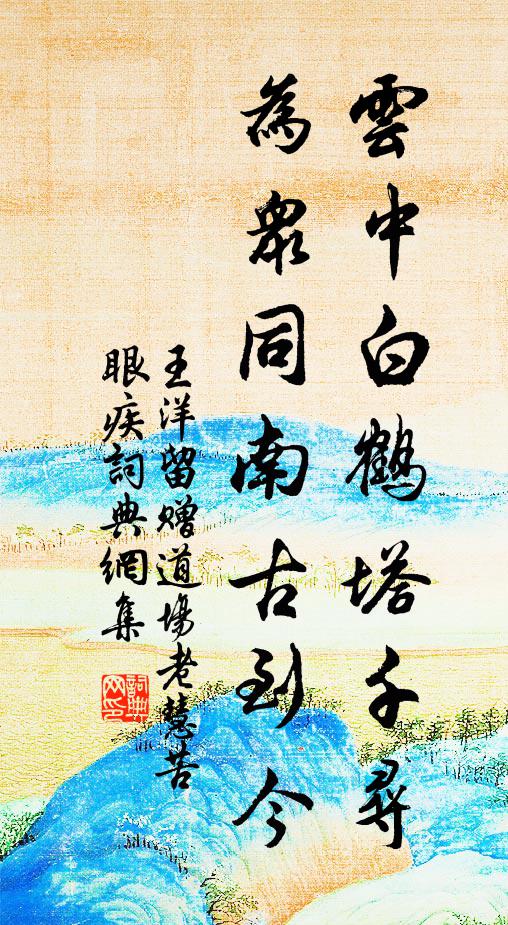 雲中白鶴塔千尋
為衆同南古到今
王洋留贈道場老慧苦
眼疾詞典網集
詞典网印